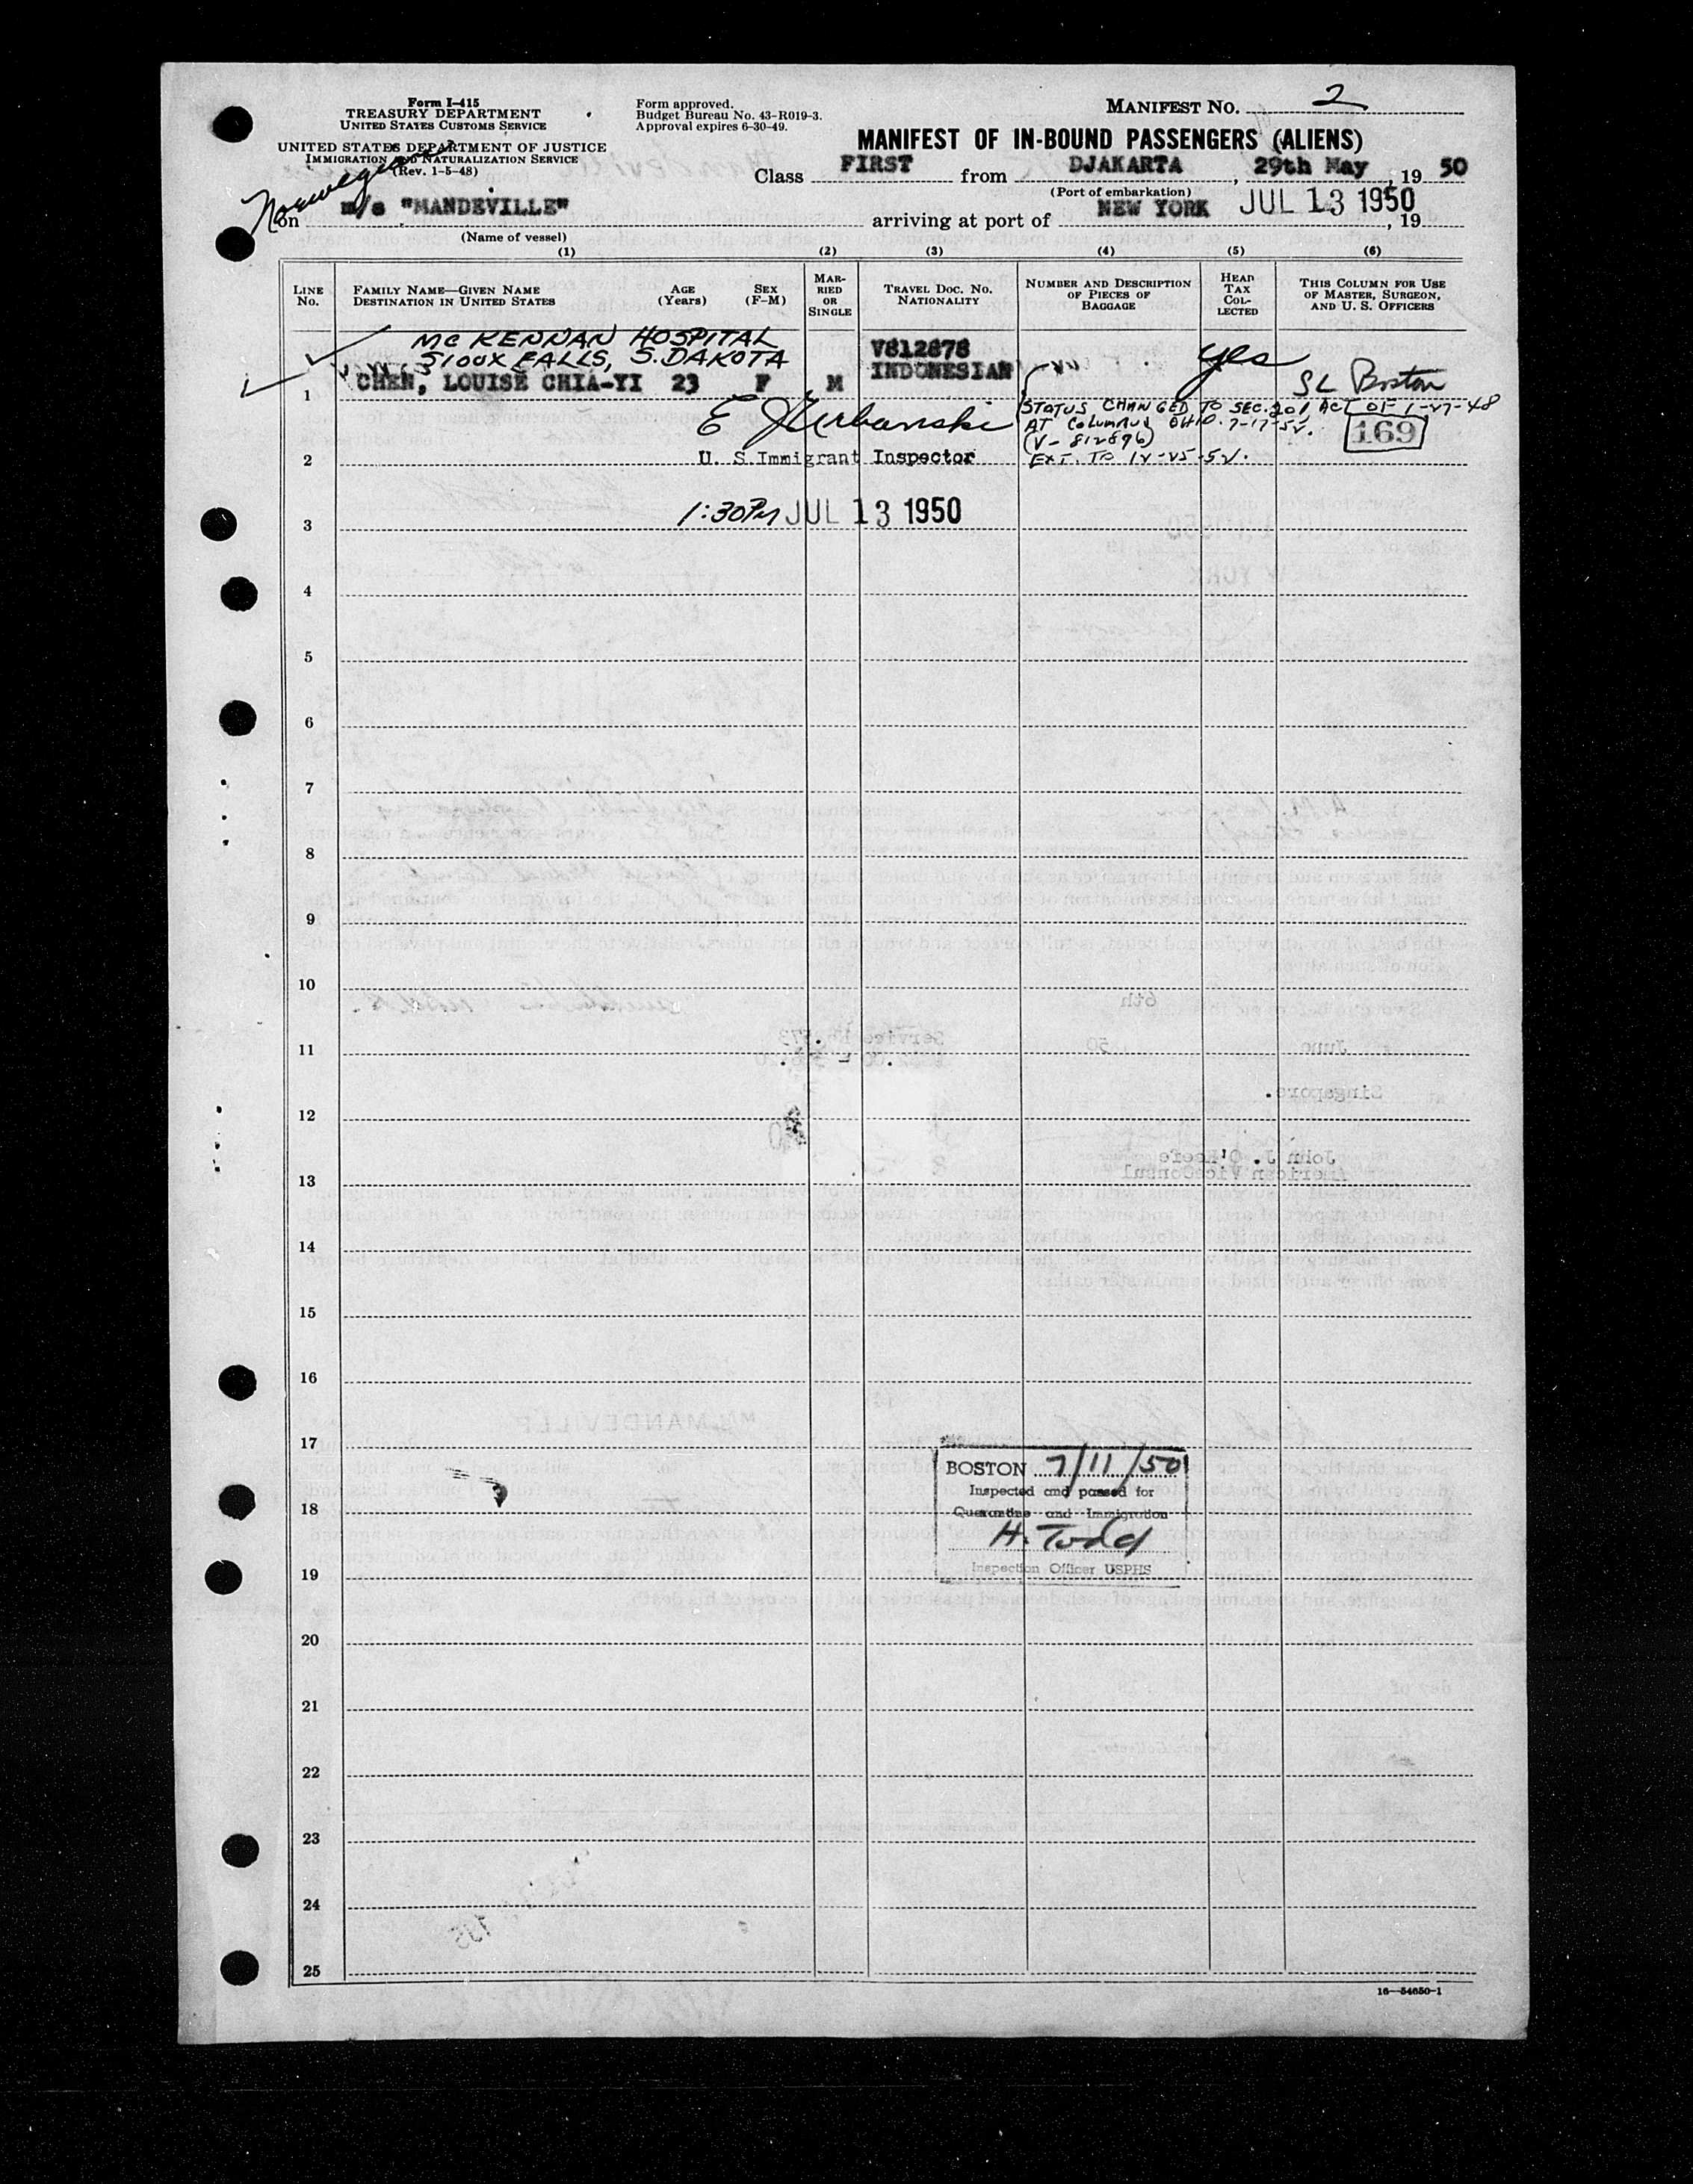 Form I-415
TREASURY DEPARTMENT
UNITED STATES CUSTOMS SERVICE
UNITED STATES DEPARTMENT OF JUSTICE
IMMIGRATION AND NATURALIZATION SERVICE
(Rev. 1-5-48)
Form approved.
Budget Bureau No. 43-R019-3.
Approval expires 6-30-49.
MANIFEST NO. 2
MANIFEST OF IN-BOUND PASSENGERS (ALIENS)
Class FIRST from DJAKARTA, 29th May, 19 50
(Port of embarkation)
Norwegian
on m/s "MANDEVILLE" arriving at port of NEW YORK JUL 13 1950, 19
(Name of vessel)
(1) (2) (3) (4) (5) (6)
LINE No.
FAMILY NAME—GIVEN NAME
DESTINATION IN UNITED STATES
AGE (Years)
SEX (F-M)
MARRIED OR SINGLE
TRAVEL DOC. NO.
NATIONALITY
NUMBER AND DESCRIPTION OF PIECES OF BAGGAGE
HEAD TAX COLLECTED
THIS COLUMN FOR USE OF MASTER, SURGEON, AND U. S. OFFICERS
MC KENNAN HOSPITAL
SIOUX FALLS, S. DAKOTA V812878 yes
1 CHEN, LOUISE CHIA-YI 23 F M INDONESIAN SL Boston
STATUS CHANGED TO SEC. 201, ACT OF 1-27-48
AT COLUMBUS OHIO. 7-17-52.
(V-812896)
EXT. TO 12-25-52.
169
E J Urbanski
2 U. S. Immigrant Inspector
3 1:30PM JUL 13 1950
4
5
6
7
8
9
10
11
12
13
14
15
16
17
BOSTON 7/11/50
Inspected and passed for
18 Quarantine and Immigration
H. Todd
19 Inspection Officer USPHS
20
21
22
23
24
25
16—54650-1